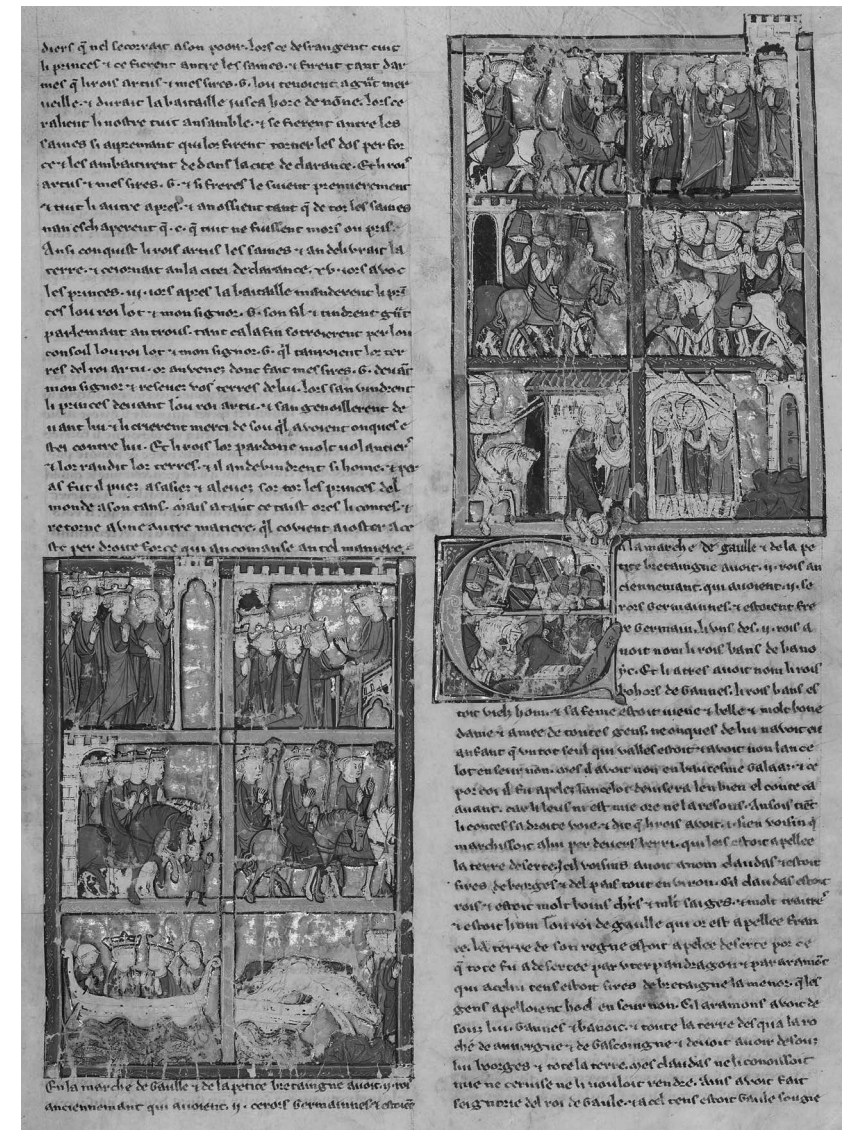 diers q̃ nel secorrait a son pooir. lors ce desrangent tuit
li princes ⁊ ce fierent antre les saines. ⁊ firent tant dar
mes q̃ li rois artus ⁊ mes sires. G. lou tenoient a gñt mer
ueille. ⁊ durait la bataille iusca hore de nõne. lors ce
ralient li nostre tuit ansamble. ⁊ se fierent antre les
saines si aspremant qui lor firent torner les dos per for
ce ⁊ les ambatirent dedans la cite de clarance. Et li rois
artus ⁊ mes sires. G. ⁊ si freres le suient premierement
⁊ tuit li autre apres. ⁊ an ossient tant q̃ de toz les saines
nan eschaperent q̃. c. q̃ tuit ne fuissent mors ou pris.
Ansi conquist li rois artus les saines ⁊ an deliurait la
terre. ⁊ ceiornait an la citei de clarance. xv. iors avoc
les princes. iii. iors apres la bataille manderent li pri͂
ces lou roi lot ⁊ mon signor. G. son fil ⁊ tindrent gñt
parlemant antrous. tant ca la fin sotroierent per lou
consoil lou roi lot ⁊ mon signor. G. q̃l tanroient lor ter
res del roi artu. or an venez donc fait mes sires. G. deuãt
mon signor ⁊ reseuez vos terres de lui. lors san vindrent
li princes deuant lou roi artu. ⁊ san genoillerent de
uant lui ⁊ li crierent merci de sou q̃l avoient onques e
stei contre lui. Et li rois lor pardone molt volantiers
⁊ lor randit lor terres. ⁊ il an devindrent si home. ⁊ per
as fut il puez a sasier ⁊ a leuer sor toz les princes del
monde a son tans. mais a tant ce taist ores li contes. ⁊
retorne a une autre matiere. q̃l covient aioster a ce
ste per droite force qui ancomanse an tel maniere.
En la marche de Gaulle ⁊ de la petite bretaingne avoit. ii. roi
anciennemant qui avoient. ii. serors Germainnes ⁊ estoiẽt
En la marche de gaulle ⁊ de la pe
tite bretaingne avoit. ii. rois an
ciennemant. qui avoient. ii. se
rors Germainnes. ⁊ estoient fre
re Germain. li uns des. ii. rois a
voit nom li rois bans de beno
yc. Et li atres avoit nom li rois
bohors de Gannes. li rois bans es
toit vielz hom. ⁊ sa feme estoit iuene ⁊ belle ⁊ molt bone
dame ⁊ amee de toutes gens. ne onques de lui n avoit eu
anfant q̃ un tot seul qui valles estoit ⁊ avoit non lance
lot en seur non. mes il avoit non en bautesme Galaaz. ⁊ ce
por coi il fu apelez lancelot deuisera len bien el conte ca
avant. car li leus ni est mie ore ne la resons. Ansois tiẽt
li contes sa droite voie. ⁊ dit q̃ li rois avoit. i. sien voisin q̃
marchissoit a lui per deuers berri. qui lors estoit apellee
la terre deserte. Icil voisins avoit a nom claudas ⁊ estoit
sires de borges ⁊ del pais tout en viron. Cil claudas estoit
rois ⁊ estoit molt bons ch͂rs ⁊ ml̃t saiges. ⁊ molt traitres
⁊ estoit hom lou roi de gaulle qui or est apellee fran
ce. la terre de son regne estoit apelee deserte por ce
q̃ tote fu adesertee par uter pandragon ⁊ par aramõt
qui a celui tens estoit sires de bretaigne la menor. q̃ les
gens apelloient hoel en seur non. Cil aramons avoit de
souz lui. Gannes ⁊ banoic. ⁊ toute la terre des qu a la ro
che de auuergne ⁊ de Gascoingne ⁊ deuoit avoir desouz
lui borges ⁊ tote la terre. mes claudas ne li conoissoit
mie ne ceruise ne li vouloit rendre. Ains avoit fait
seignorie del roi de Gaule. ⁊ a cel tens estoit Gaule sougie